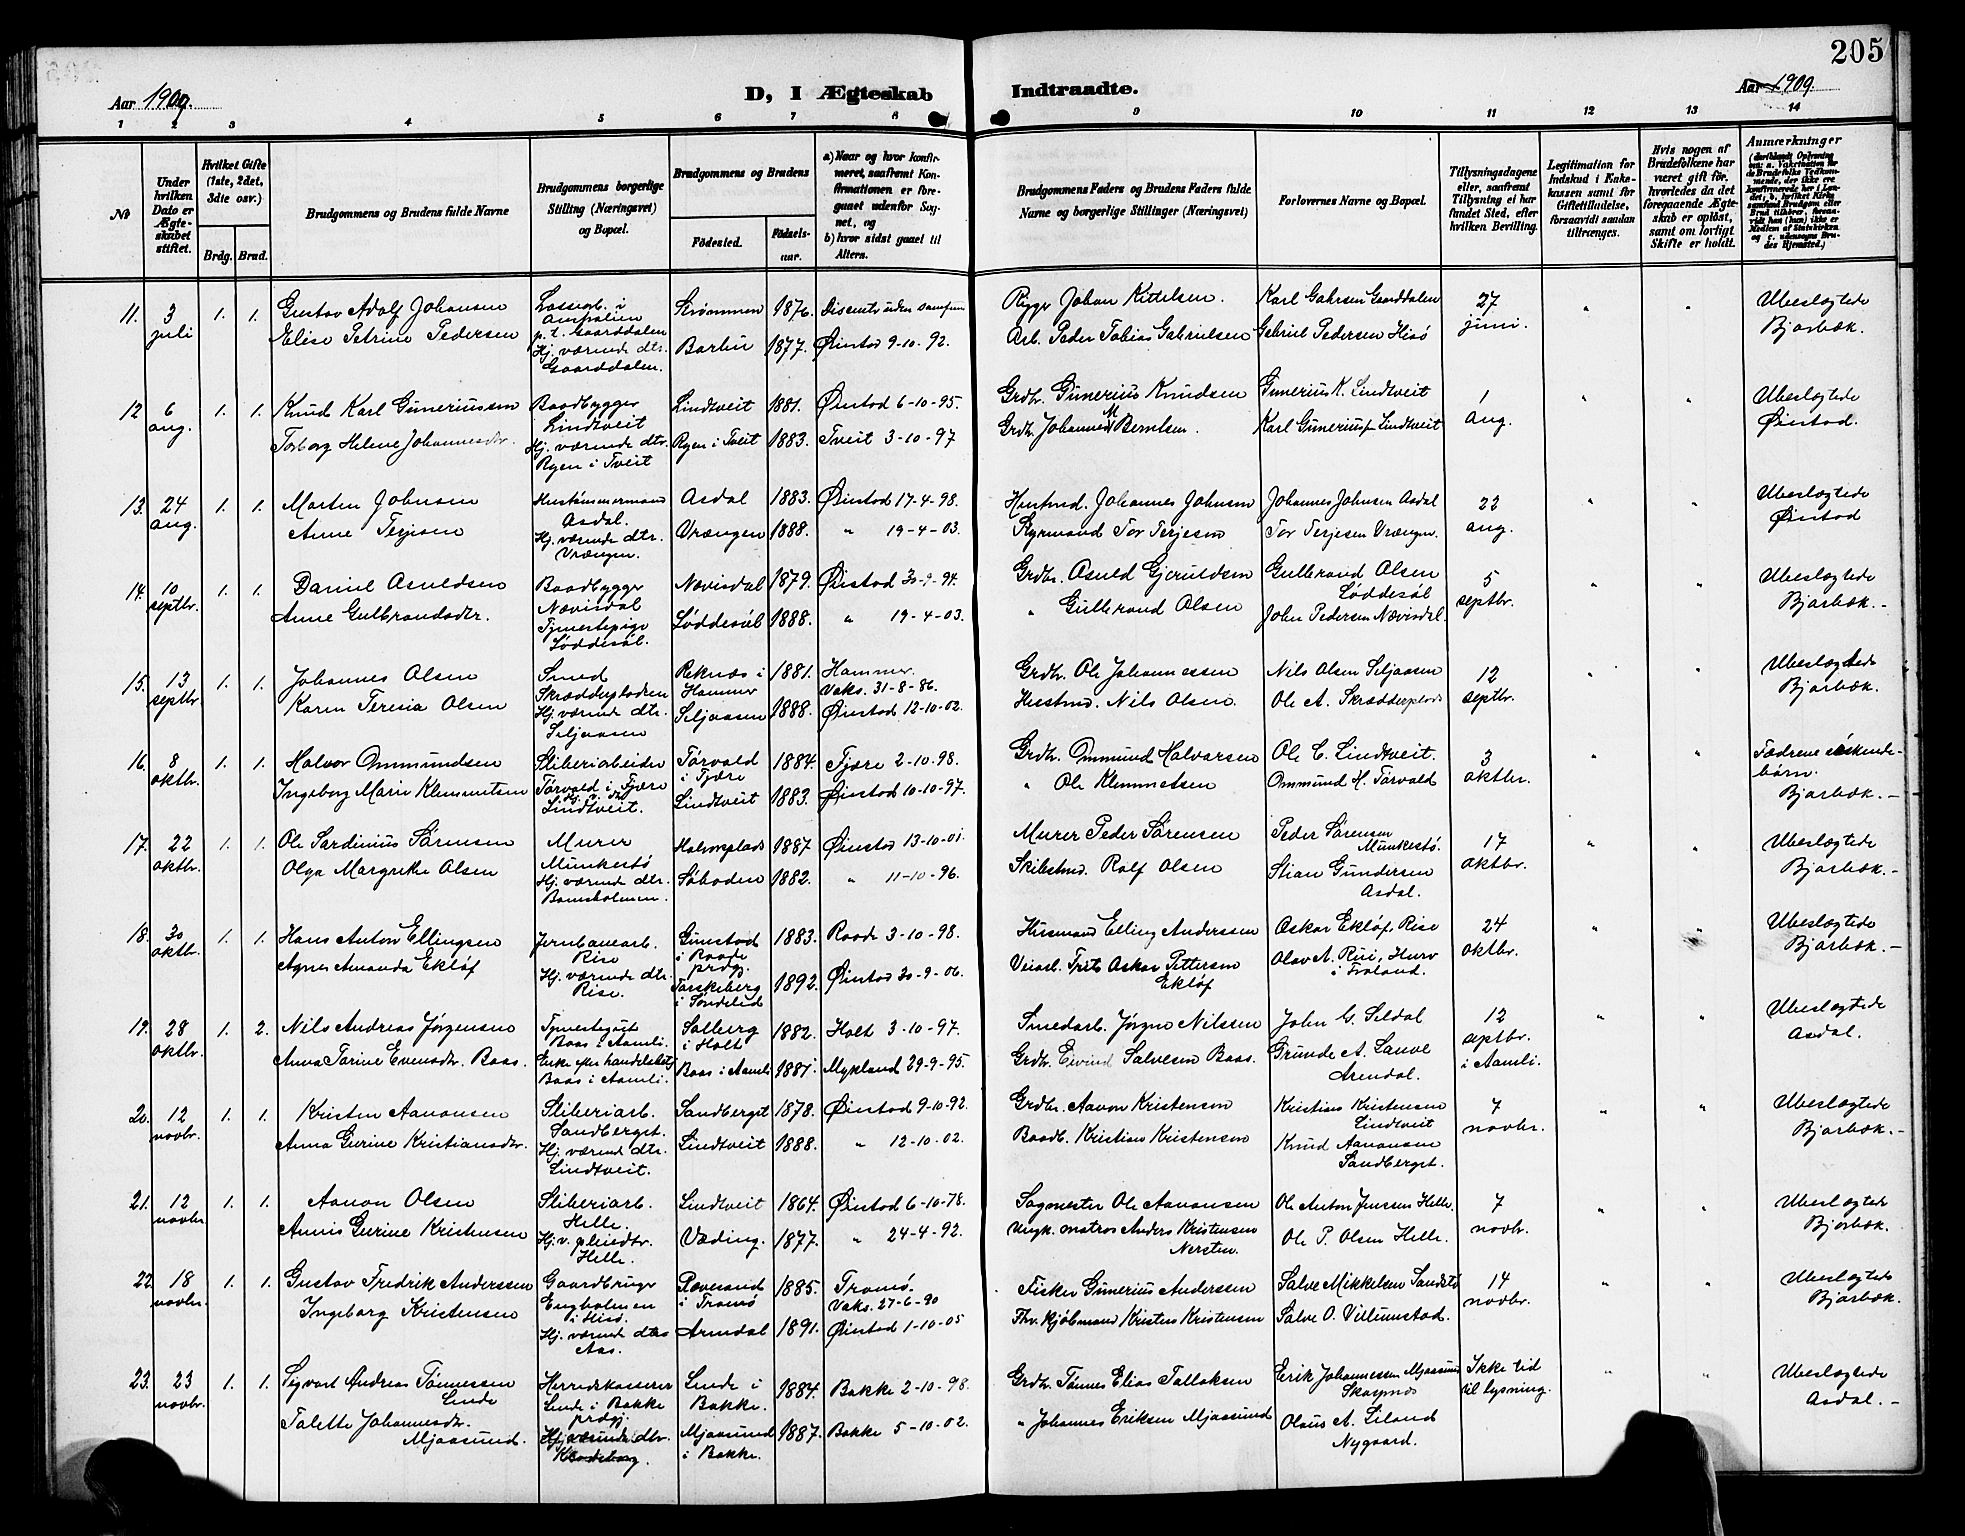 205
Aar 1909.
D, I Ægteskab Indtraadte.
Aar 1909.
1 2 3 4 5 6 7 8 9 10 11 12 13 14
№
Under hvilken Dato er Ægteskabet stiftet.
Hvilket Gifte (1ste, 2det, 3die osv.)
Brdg. Brud.
Brudgommens og Brudens fulde Navne
Brudgommens borgerlige Stilling (Næringsvei) og Bopæl.
Brudgommens og Brudens
Födested.
Födselsaar.
a) Naar og hvor konfirmeret, saafremt Konfirmationen er foregaaet udenfor Sognet, og
b) hvor sidst gaaet til Alters.
Brudgommens Faders og Brudens Faders fulde Navne og borgerlige Stillinger (Næringsvei)
Forlovernes Navne og Bopæl.
Tillysningsdagene eller, saafremt Tillysning ei har fundet Sted, efter hvilken Bevilling.
Legitimation for Indskud i Enkekassen samt for Giftetilladelse, forsaavidt saadan tiltrænges.
Hvis nogen af Brudefolkene har været gift för, hvorledes da det foregaaende Ægteskab er oplöst, samt om lovligt Skifte er holdt.
Anmærkninger
11. 3 juli 1. 1. Gustav Adolf Johansen
Elise Petrine Pedersen
Australien p.t. Gaarddalen
Hj. værende dtr. Gaarddalen.
Strømmen 1876. Discenter uden samfund
Barbu 1877. Øiestad 9-10-92.
Rigger Johan Kittelsen.
Arb. Peder Tobias Gabrielsen
Karl Gahrsen Gaarddalen
Gabriel Pedersen Hisö
27 juni.
Ubeslægtede
Bjorbæk.
12 6 aug. 1. 1. Knud Karl Gunerius sen
Torborg Helene Johannesdtr.
Baadbygger Lindtveit
Hj. værende dtr. Ryen i Tveit
Lindtveit 1881. Øiestad 6-10-95.
Ryen i Tveit 1883. Tveit 3-10-97
Grdbr. Gunerius Knudsen
Grdbr. Johannes M Berntsen.
Gunerius K. Lindtveit
Karl Gunerius Lindtveit
1 aug.
Ubeslægtede
Øiestad.
13. 24 aug. 1. 1. Morten Johnsen
Anne Terjesen
Hustømmermand Asdal.
Hj. værende dtr. Vrængen.
Asdal 1883. Øiestad 17-4-98.
Vrængen 1888. " 19-4-03.
Husmd. Johannes Johnsen
Styrmand Tor Terjesen
Johannes Johnsen Asdal
Tor Terjesen Vrængen.
22 aug.
Ubeslægtede
Øiestad
14. 10 septbr. 1. 1. Daniel Asuldsen
Anne Gulbrandsdtr.
Baadbygger Nævisdal
Tjenestepige Løddesøl.
Nævisdal 1879. Øiestad 30-9-94.
Løddesøl 1888. " 19-4-03.
Grdbr. Asuld Gjeruldsen
" Gulbrand Olsen
Gulbrand Olsen Løddesøl
John Pedersen Nævisdal.
5 septbr.
Ubeslægtede
Bjorbæk.
15. 13 septbr. 1. 1. Johannes Olsen
Karen Teresia Olsen
Smed Skrædderpladsen
Hj. værende dtr. Siljaasen
Reknæs i Hammer 1881. Hammer. Vaks. 31-8-86.
Siljaasen 1888. Øiestad 12-10-02.
Grdbr. Ole Johannessen
Husmd. Nils Olsen.
Nils Olsen Siljaasen
Ole A. Skrædderplads
12 septbr.
Ubeslægtede
Bjorbæk.
16. 8 oktbr. 1. 1. Halvor Ommundsen
Ingeborg Marie Klemmetsen
Sliberiarbeider Törvold i Fjære
Hj. v. dtr. Lindtveit.
Törvold i Fjære 1884. Fjære 2-10-98.
Lindtveit 1883. Øiestad 10-10-97.
Grdbr. Ommund Halvorsen
" Ole Klemmetsen
Ole C. Lindtveit.
Ommund H. Törvold
3 oktbr.
Fædrene søskendebörn.
Bjorbæk.
17. 22 oktbr. 1. 1. Ole Sardinius Sörensen
Olga Margrethe Olsen
Murer Munkestø
Hj. værende dtr. Bomsholmen.
Halvorsplads 1887. Øiestad 13-10-01.
Søboden 1882. " 11-10-96.
Murer Peder Sørensen
Skibstmd. Rolf Olsen
Peder Sørensen Munkestø.
Stian Gundersen Asdal.
17 oktbr.
Ubeslægtede
Bjorbæk.
18. 30 oktbr. 1. 1. Hans Anton Ellingsen
Agnes Amanda Ekløf
Jernbanearb. Rise
Hj. værende dtr. Rise.
Gunstad i Raade prdgj. 1883. Raade 3-10-98.
Torskeberg i Søndeled 1892. Øiestad 30-9-06.
Husmand Elling Anderssen
Veiarb. Frits Oskar Pettersen Ekløf
Oskar Ekløf, Rise
Olav A. Rui, Hurv i Froland.
24 oktbr.
Ubeslægtede
Bjorbæk.
19. 28 oktbr. 1. 2. Nils Andreas Jørgensen
Anna Torine Evensdtr. Baas.
Tjenestegut Baas i Aamli.
Enke efter handelsbetj. Baas i Aamli.
Solberg i Holt 1882. Holt 3-10-97.
Baas i Aamli 1881. Mykland 29-9-95.
Smedarb. Jørgen Nilssen
Grdbr. Eivind Salvesen Baas.
John G. Seldal
Grunde A. Sanve Arendal.
12 septbr. i Aamli.
Ubeslægtede
Asdal.
20. 12 novbr. 1. 1. Kristen Aanonsen
Anna Gurine Kristiansdtr.
Sliberiarb. Sandberget.
Hj. værende dtr. Lindtveit.
Sandberget 1878. Øiestad 9-10-92.
Lindtveit 1888. " 12-10-02.
Grdbr. Aanon Kristensen
Baadb. Kristian Kristensen
Kristian Kristensen Lindtveit
Knud Aanonsen Sandberget.
7 novbr.
Ubeslægtede
Bjorbæk.
21. 12 novbr 1. 1. Aanon Olsen
Annie Gurine Kristensen
Sliberiarb. Helle.
Hj. v. pleiedtr. Helle.
Lindtveit 1864. Øiestad 6-10-78.
Væding. 1877. " 24-4-92.
Sagmester Ole Aanonsen
Ungk. matros Anders Kristensen Nersten.
Ole Anton Jensen Helle.
Ole P. Olsen Helle.
7 novbr.
Ubeslægtede
Bjorbæk.
22. 18 novbr. 1. 1. Gustav Fredrik Anderssen
Ingeborg Kristensen
Gaardbruger Engholmen i Hisö.
Hj. værende dtr Aas.
Revesand i Tromø 1885. Tromø. Vaks. 27-6-90
Arendal 1891. Øiestad 1-10-05
Fisker Gunerius Anderssen
Fhv. kjöbmand Kristen Kristensen
Salve Mikkelsen Sandstø
Salve O. Villumstad.
14 novbr.
Ubeslægtede
Bjorbæk.
23. 23 novbr. 1. 1. Sigvart Andreas Tönnessen Linde
Talette Johannesdtr. Mjaasund.
Herredskasserer Linde i Bakke prdgj.
Hj. værende dtr.
Linde i Bakke. 1884. Bakke 2-10-98.
Mjaasund i Bakke. 1887. Bakke 5-10-02.
Grdbr. Tönnes Elias Tollaksen
" Johannes Eriksen Mjaasund
Erik Johannessen Mjaasund
Olaus A. Liland Nygaard.
Ikke tid til lysning.
Ubeslægtede
Asdal.